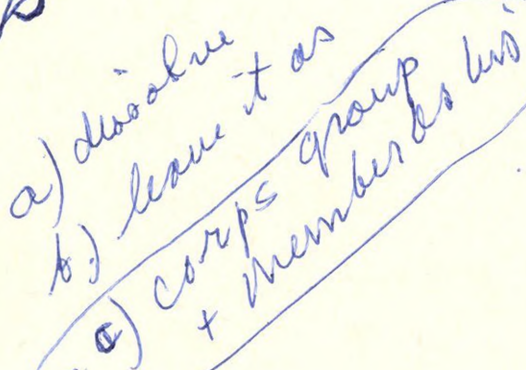 a) dissolve
b) leave it as
c) corps group
+ members as his